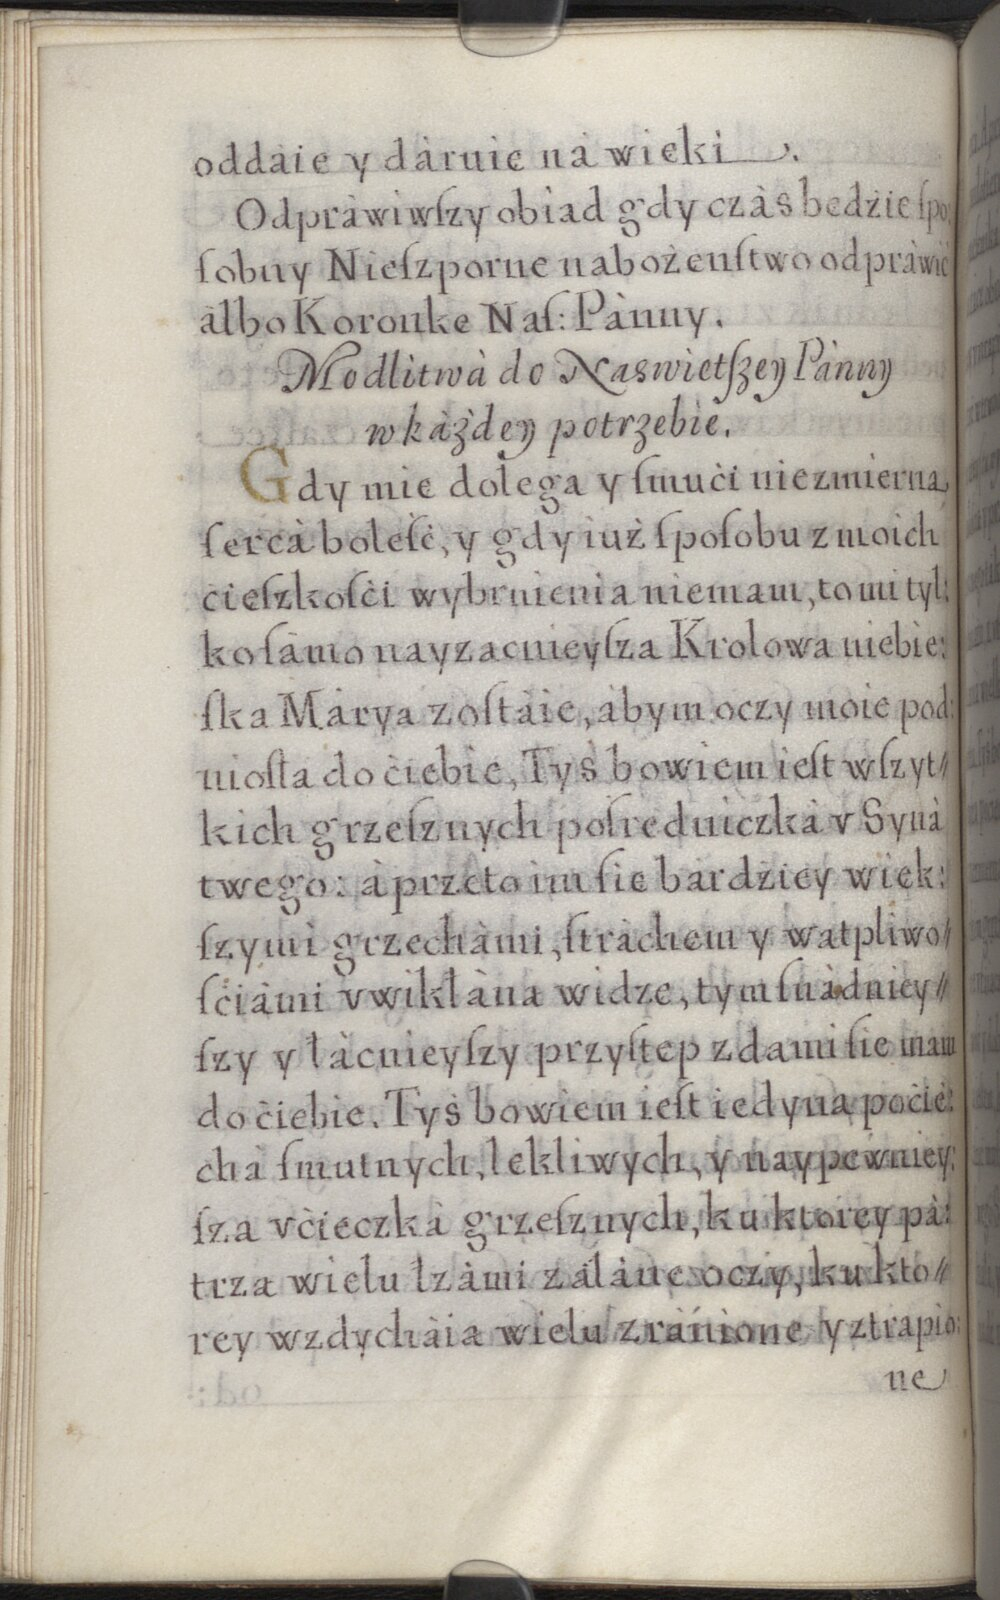 oddàie y dàruie nà wieki.
Odpràwiwſzy obiad gdy czàs bedżie ſpo
ſobny Nieſzporne nabożenſtwo odpràwić
àlbo Koronke Naſ: Pànny.
Modlitwà do Naswietſzey Pànny
w kàżdey potrzebie.
Gdy mie dolega y ſmući niezmierna
ſercà boleſć, y gdy iuż ſpoſobu z moich
cieſzkoſći wybrnienia niemam, to mi tyl:
ko ſàmo nayzacnieyſza Krolowa niebie:
ſka Màrya zoſtàie, àbym oczy moie pod:
nioſła do ćiebie, Tyś bowiem ieſt wſzyt//
kich grzeſznych poſredniczkà v Synà
twego: à przeto im ſie bàrdźiey wiek:
ſzymi grzechàmi, ſtràchem y watpliwo//
ſćiàmi vwikłàna widze, tym ſnàdniey//
ſzy y łàcnieyſzy przyſtep zda mi ſie mam
do ćiebie. Tyś bowiem ieſt iedyna poćie:
chà ſmutnych, lekliwych, y naypewniey:
ſza vćieczkà grzeſznych, ku ktorey pà:
trza wielu łzàmi zàlàne oczy, ku kto//
rey wzdychàia wielu zràńione y ztrapio:
ne
od: